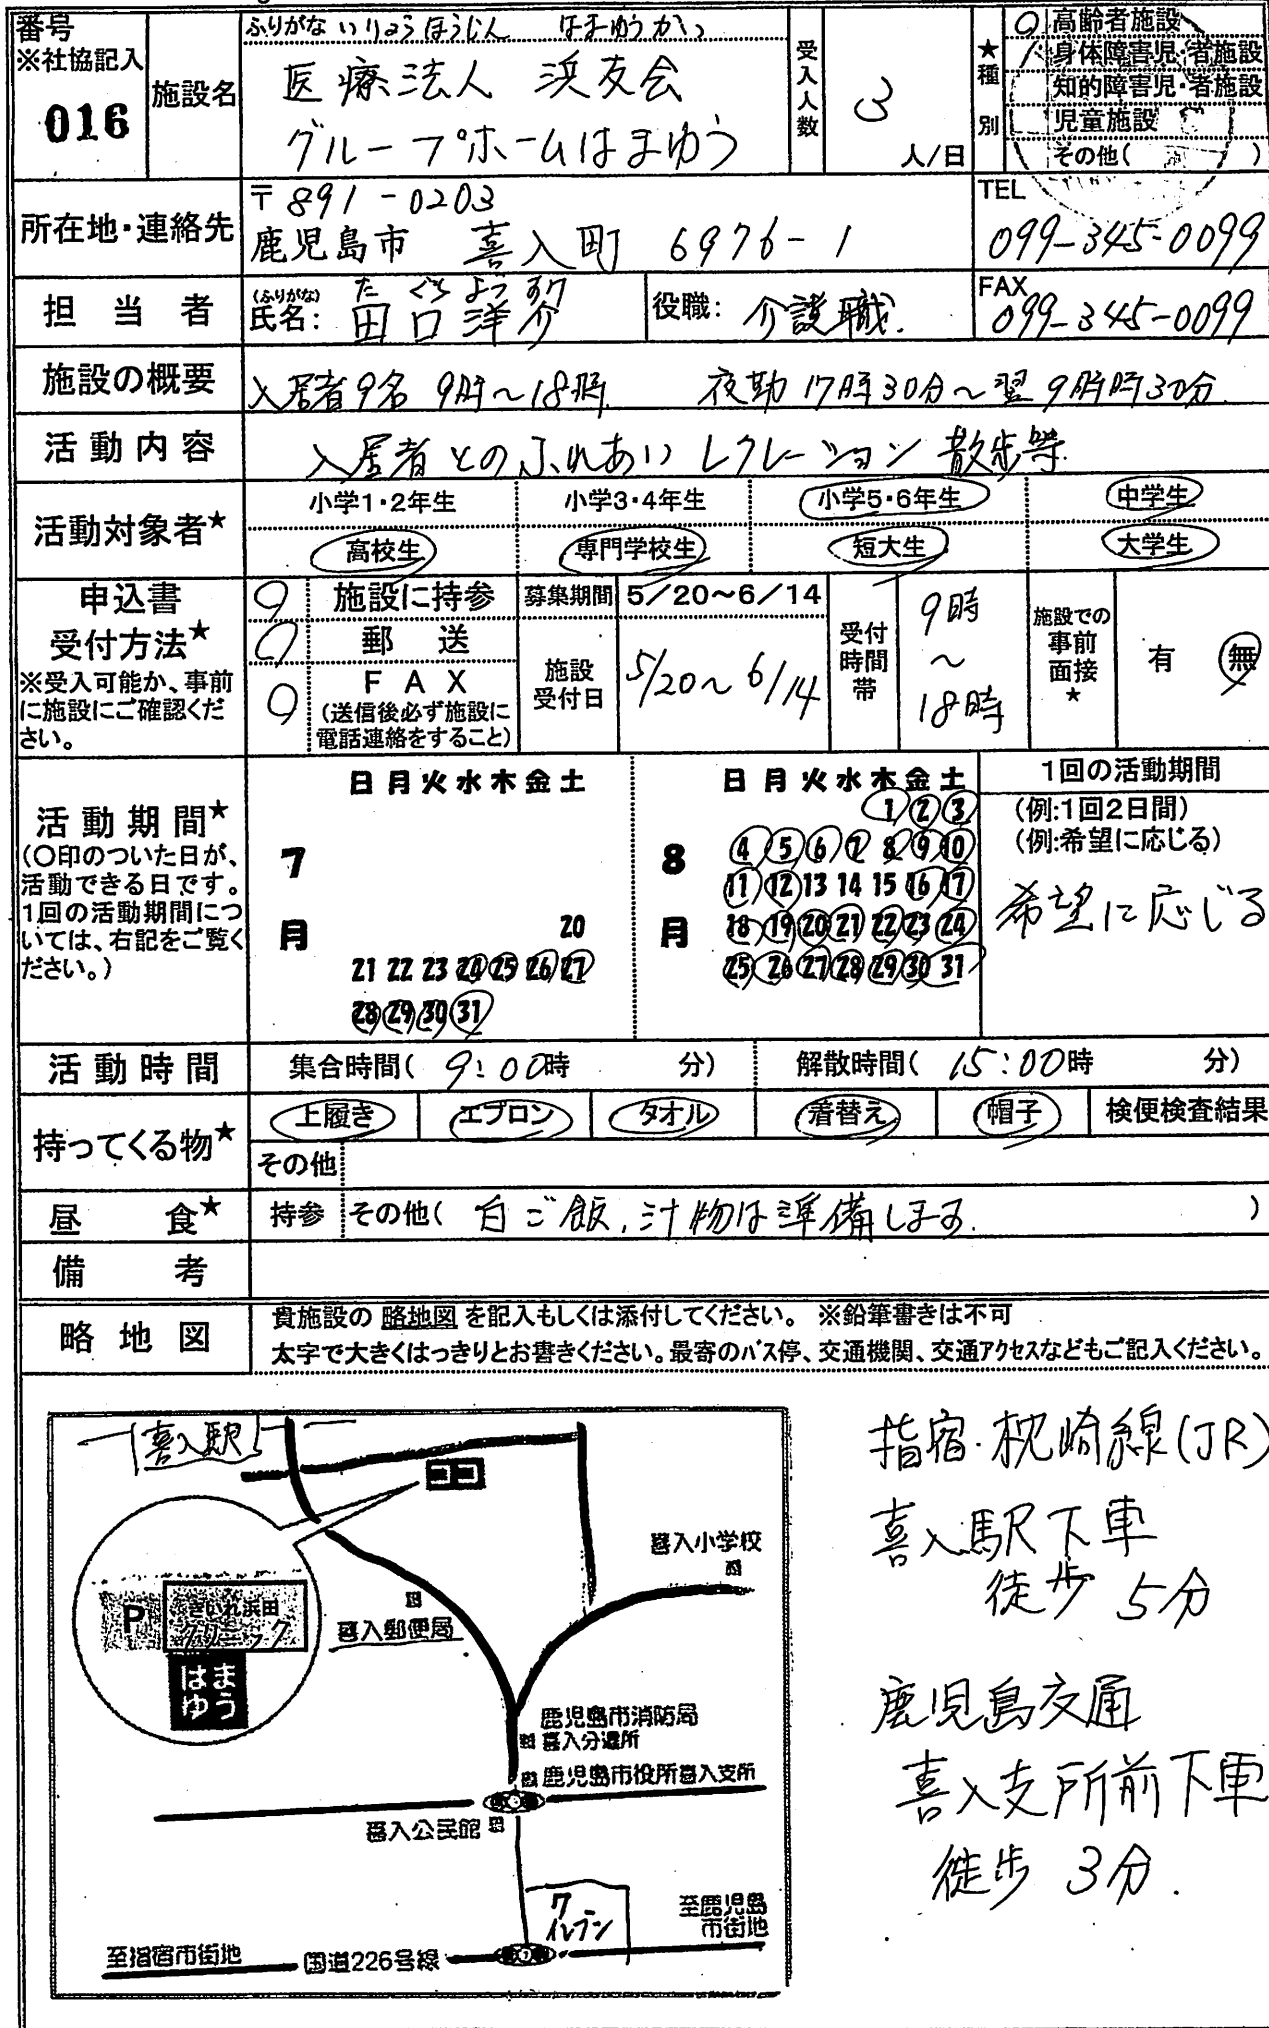 番号
※社協記入
016
施設名
ふりがな いりょうほうじん はまゆうかい
医療法人 浜友会
グループホームはまゆう
受入人数
3
人/日
★種別
高齢者施設
身体障害児・者施設
知的障害児・者施設
児童施設
その他( )
所在地・連絡先
〒891-0203
鹿児島市 喜入町 6976-1
TEL
099-345-0099
担当者
(ふりがな) たぐちようすけ
氏名: 田口洋介
役職: 介護職.
FAX
099-345-0099
施設の概要
入居者9名 9時~18時 夜勤17時30分~翌9時時30分.
活動内容
入居者とのふれあい レクレーション 散歩等
活動対象者★
小学1・2年生 小学3・4年生 小学5・6年生 中学生
高校生 専門学校生 短大生 大学生
申込書
受付方法★
※受入可能か、事前
に施設にご確認くだ
さい。
施設に持参
郵送
FAX
(送信後必ず施設に
電話連絡をすること)
募集期間 5/20~6/14
施設
受付日
5/20~6/14
受付
時間
帯
9時
~
18時
施設での
事前
面接
★
有 無
活動期間★
(○印のついた日が、
活動できる日です。
1回の活動期間につ
いては、右記をご覧く
ださい。)
7月
日月火水木金土
20
21 22 23 24 25 26 27
28 29 30 31
8月
日月火水木金土
1 2 3
4 5 6 7 8 9 10
11 12 13 14 15 16 17
18 19 20 21 22 23 24
25 26 27 28 29 30 31
1回の活動期間
(例:1回2日間)
(例:希望に応じる)
希望に応じる
活動時間
集合時間( 9:00時 分)
解散時間( 15:00時 分)
持ってくる物★
上履き エプロン タオル 着替え 帽子 検便検査結果
その他
昼食★
持参 その他( 白ご飯,汁物は準備します. )
備考
略地図
貴施設の 略地図 を記入もしくは添付してください。 ※鉛筆書きは不可
太字で大きくはっきりとお書きください。最寄のバス停、交通機関、交通アクセスなどもご記入ください。
喜入駅
ココ
喜入小学校
P
きいれ浜田
クリニック
はま
ゆう
喜入郵便局
鹿児島市消防局
喜入分遣所
鹿児島市役所喜入支所
喜入公民館
7
イレブン
至鹿児島
市街地
至指宿市街地
国道226号線
指宿・枕崎線(JR)
喜入駅下車
徒歩 5分
鹿児島交通
喜入支所前下車
徒歩 3分.